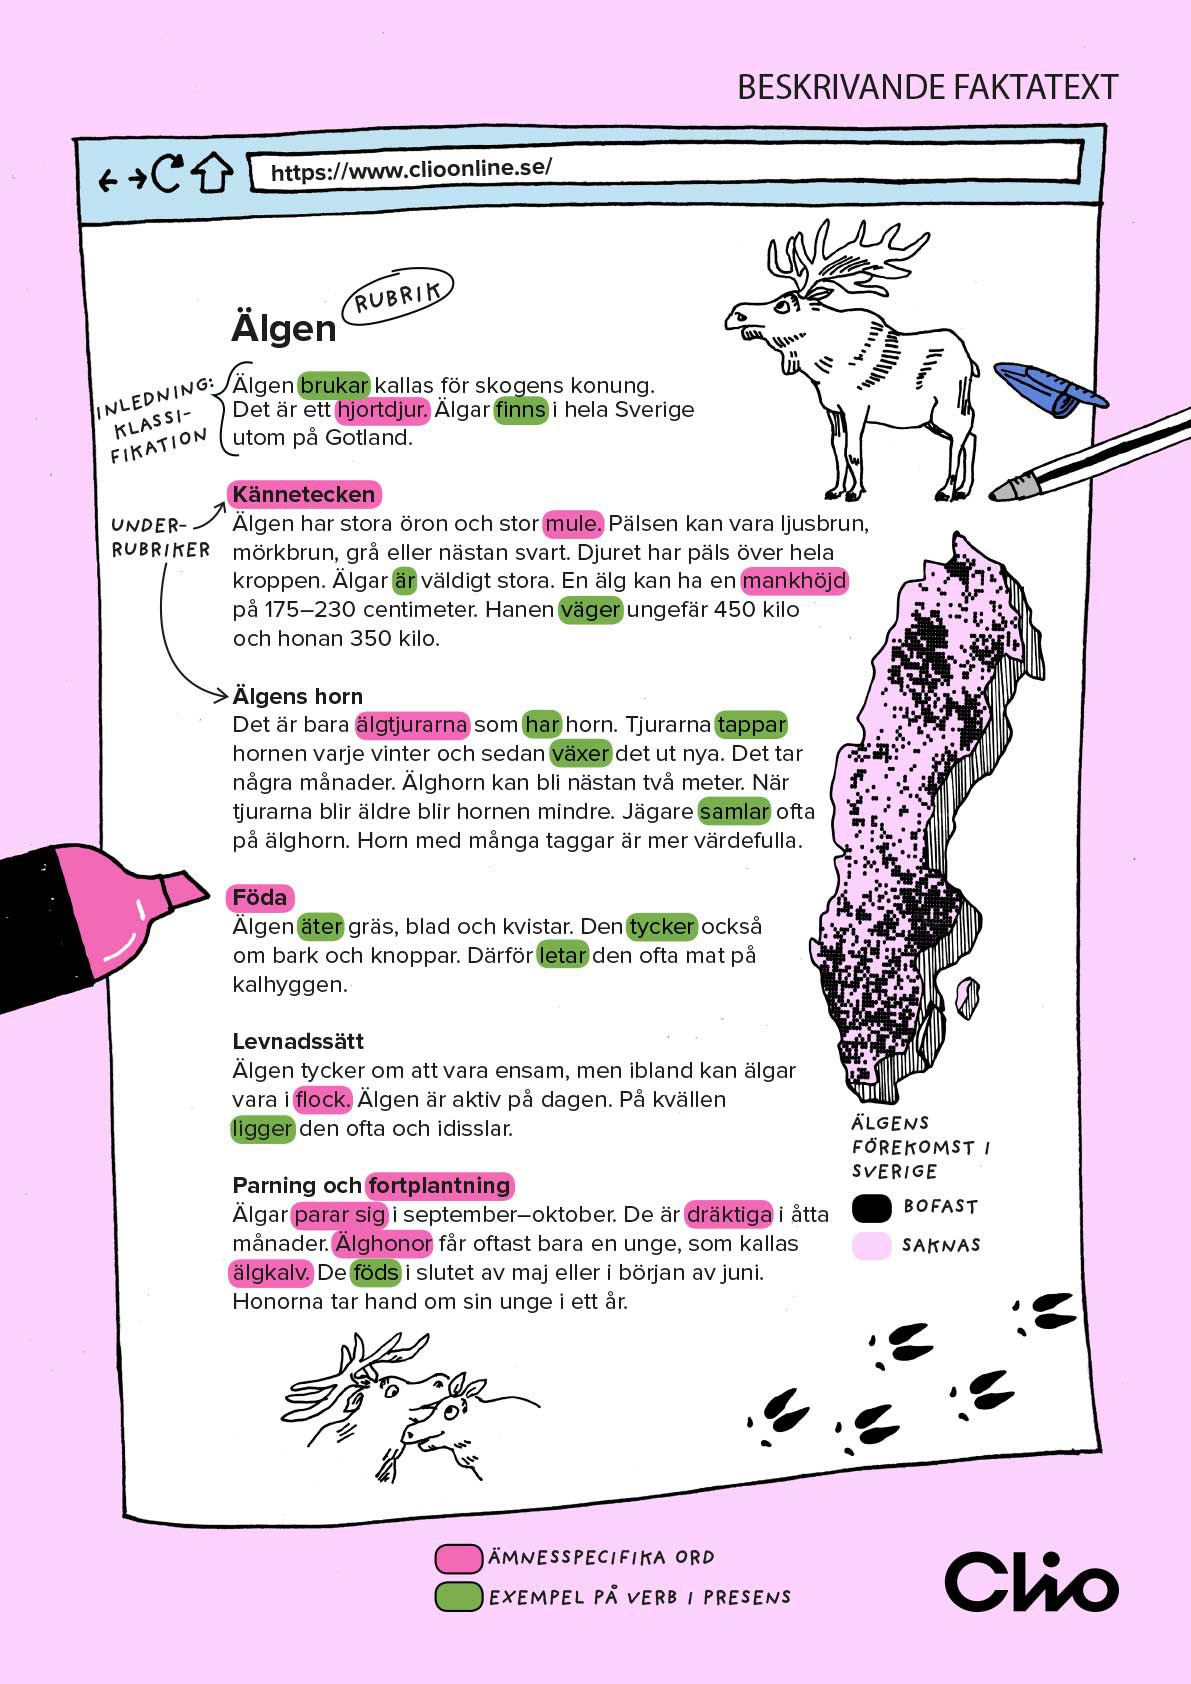 BESKRIVANDE FAKTATEXT
https://www.clioonline.se/
RUBRIK
Älgen
INLEDNING:
KLASSI-
FIKATION
Älgen brukar kallas för skogens konung.
Det är ett hjortdjur. Älgar finns i hela Sverige
utom på Gotland.
UNDER-
RUBRIKER
Kännetecken
Älgen har stora öron och stor mule. Pälsen kan vara ljusbrun,
mörkbrun, grå eller nästan svart. Djuret har päls över hela
kroppen. Älgar är väldigt stora. En älg kan ha en mankhöjd
på 175–230 centimeter. Hanen väger ungefär 450 kilo
och honan 350 kilo.
Älgens horn
Det är bara älgtjurarna som har horn. Tjurarna tappar
hornen varje vinter och sedan växer det ut nya. Det tar
några månader. Älghorn kan bli nästan två meter. När
tjurarna blir äldre blir hornen mindre. Jägare samlar ofta
på älghorn. Horn med många taggar är mer värdefulla.
Föda
Älgen äter gräs, blad och kvistar. Den tycker också
om bark och knoppar. Därför letar den ofta mat på
kalhyggen.
Levnadssätt
Älgen tycker om att vara ensam, men ibland kan älgar
vara i flock. Älgen är aktiv på dagen. På kvällen
ligger den ofta och idisslar.
Parning och fortplantning
Älgar parar sig i september–oktober. De är dräktiga i åtta
månader. Älghonor får oftast bara en unge, som kallas
älgkalv. De föds i slutet av maj eller i början av juni.
Honorna tar hand om sin unge i ett år.
ÄLGENS
FÖREKOMST I
SVERIGE
BOFAST
SAKNAS
ÄMNESSPECIFIKA ORD
EXEMPEL PÅ VERB I PRESENS
Clio